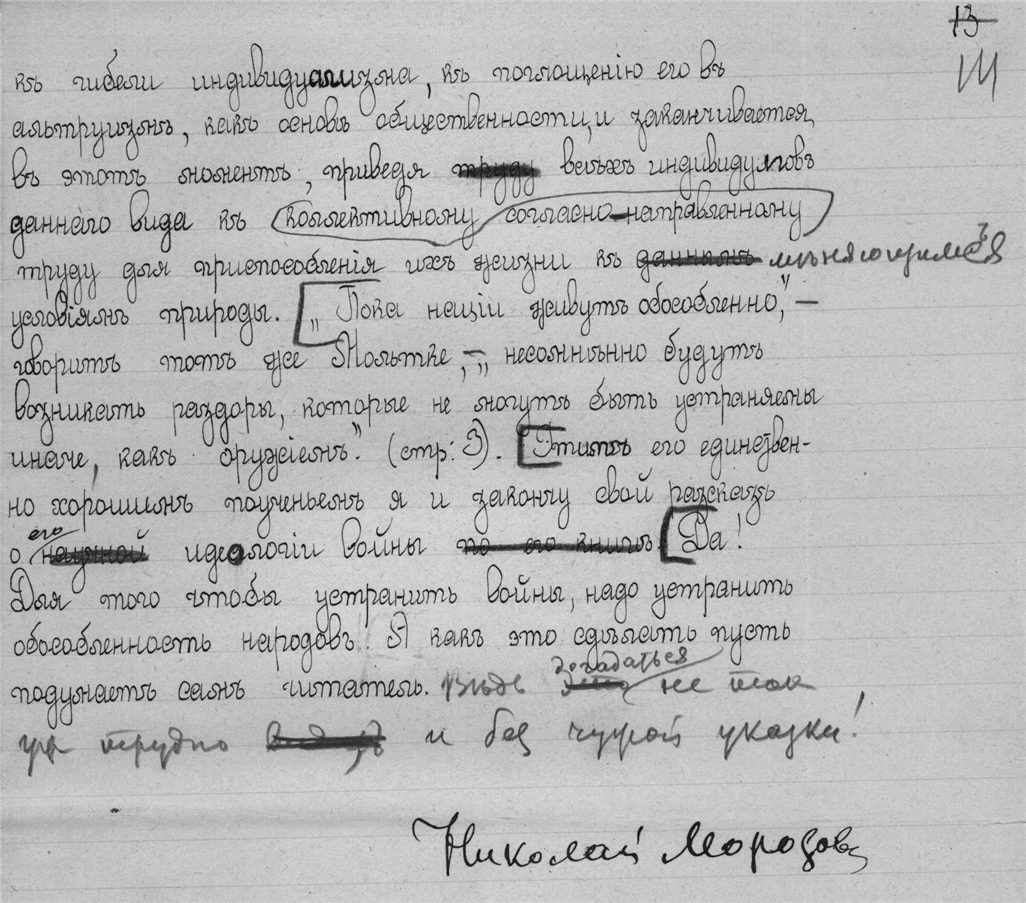 13
къ гибели индивидуализма, къ поглощенію его въ
альтруизмъ, какъ основъ общественности, и заканчивается
въ этотъ моментъ, приведя труду всѣхъ индивидуумовъ
даннаго вида къ коллективному согласно-направленному
труду для приспособленія ихъ жизни къ даннымъ мѣняющимся
условіямъ природы. „Пока націи живутъ обособленно,“ —
говоритъ тотъ же Мольтке, — „несомнѣнно будутъ
возникать раздоры, которые не могутъ быть устраняемы
иначе, какъ оружіемъ.“ (стр: 3). Этимъ его единствен-
но хорошимъ поученьемъ я и закончу свой разсказъ
его
о научной идеологіи войны по его книгѣ. Да!
Для того чтобы устранить войны, надо устранить
обособленность народовъ. А какъ это сдѣлать пусть
догадаться
подумаетъ самъ читатель. Вѣдь не так
уж трудно и без чужой указки!
Николай Морозовъ